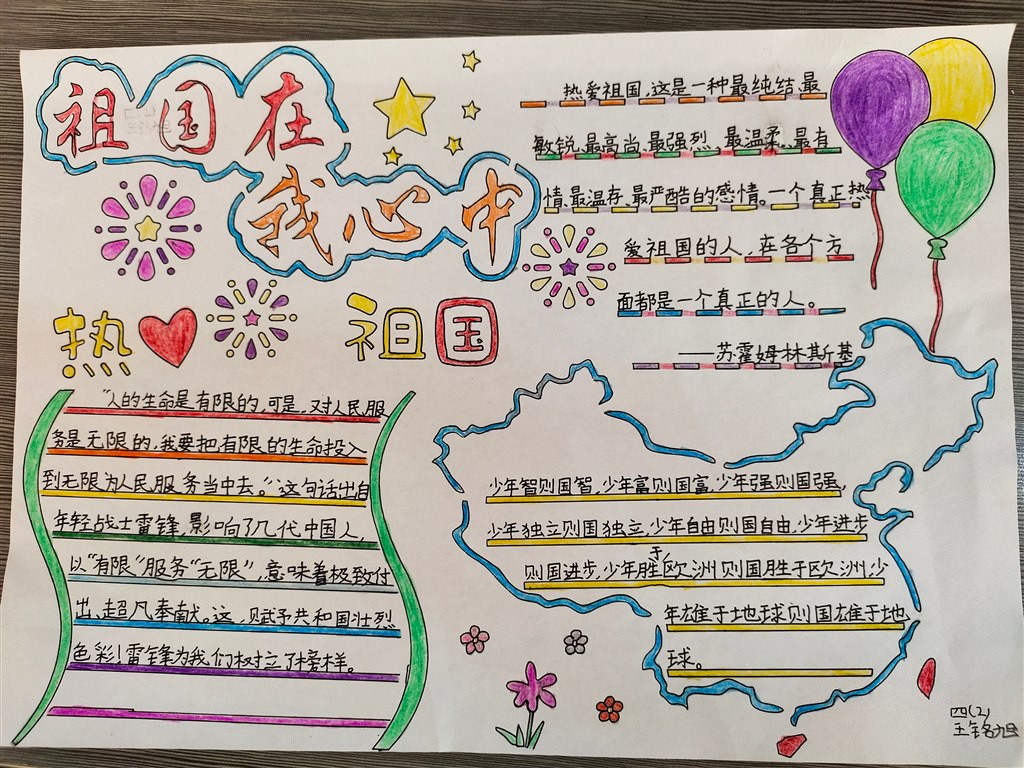 祖国在
我心中
热爱祖国,这是一种最纯结、最
敏锐、最高尚、最强烈、最温柔、最有
情、最温存、最严酷的感情。一个真正热
爱祖国的人,在各个方
面都是一个真正的人。
——苏霍姆林斯基
热 祖国
“人的生命是有限的,可是,对人民服
务是无限的,我要把有限的生命投入
到无限为人民服务当中去。”这句话出自
年轻战士雷锋,影响了几代中国人,
以“有限”服务“无限”,意味着极致付
出、超凡奉献。这,赋予共和国壮烈
色彩!雷锋为我们树立了榜样。
少年智则国智,少年富则国富,少年强则国强,
少年独立则国独立,少年自由则国自由,少年进步
则国进步,少年胜于欧洲则国胜于欧洲,少
年雄于地球则国雄于地
球。
四(2)